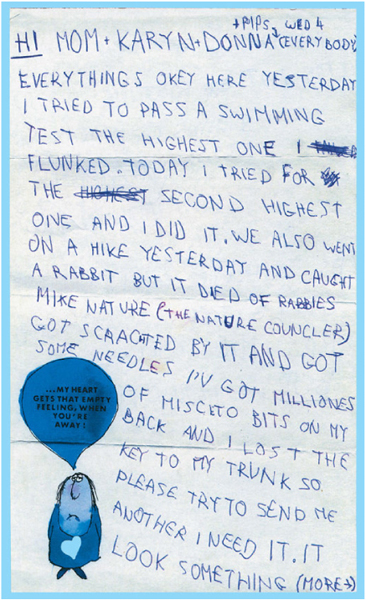 + PIPS, WED 4
HI MOM + KARYN + DONNA (EVERY BODY)
EVERYTHINGS OKEY HERE YESTERDAY
I TRIED TO PASS A SWIMMING
TEST THE HIGHEST ONE I
FLUNKED. TODAY I TRIED FOR
THE HIGHEST SECOND HIGHEST
ONE AND I DID IT. WE ALSO WENT
ON A HIKE YESTERDAY AND CAUGHT
A RABBIT BUT IT DIED OF RABBIES
MIKE NATURE (THE NATURE COUNCLER)
GOT SCRACTED BY IT AND GOT
SOME NEEDLES I'V GOT MILLIONES
OF MISCITO BITS ON MY
BACK AND I LOST THE
KEY TO MY TRUNK SO
PLEASE TRY TO SEND ME
ANOTHER I NEED IT. IT
LOOK SOMETHING (MORE→)
...MY HEART
GETS THAT EMPTY
FEELING, WHEN
YOU'RE
AWAY!